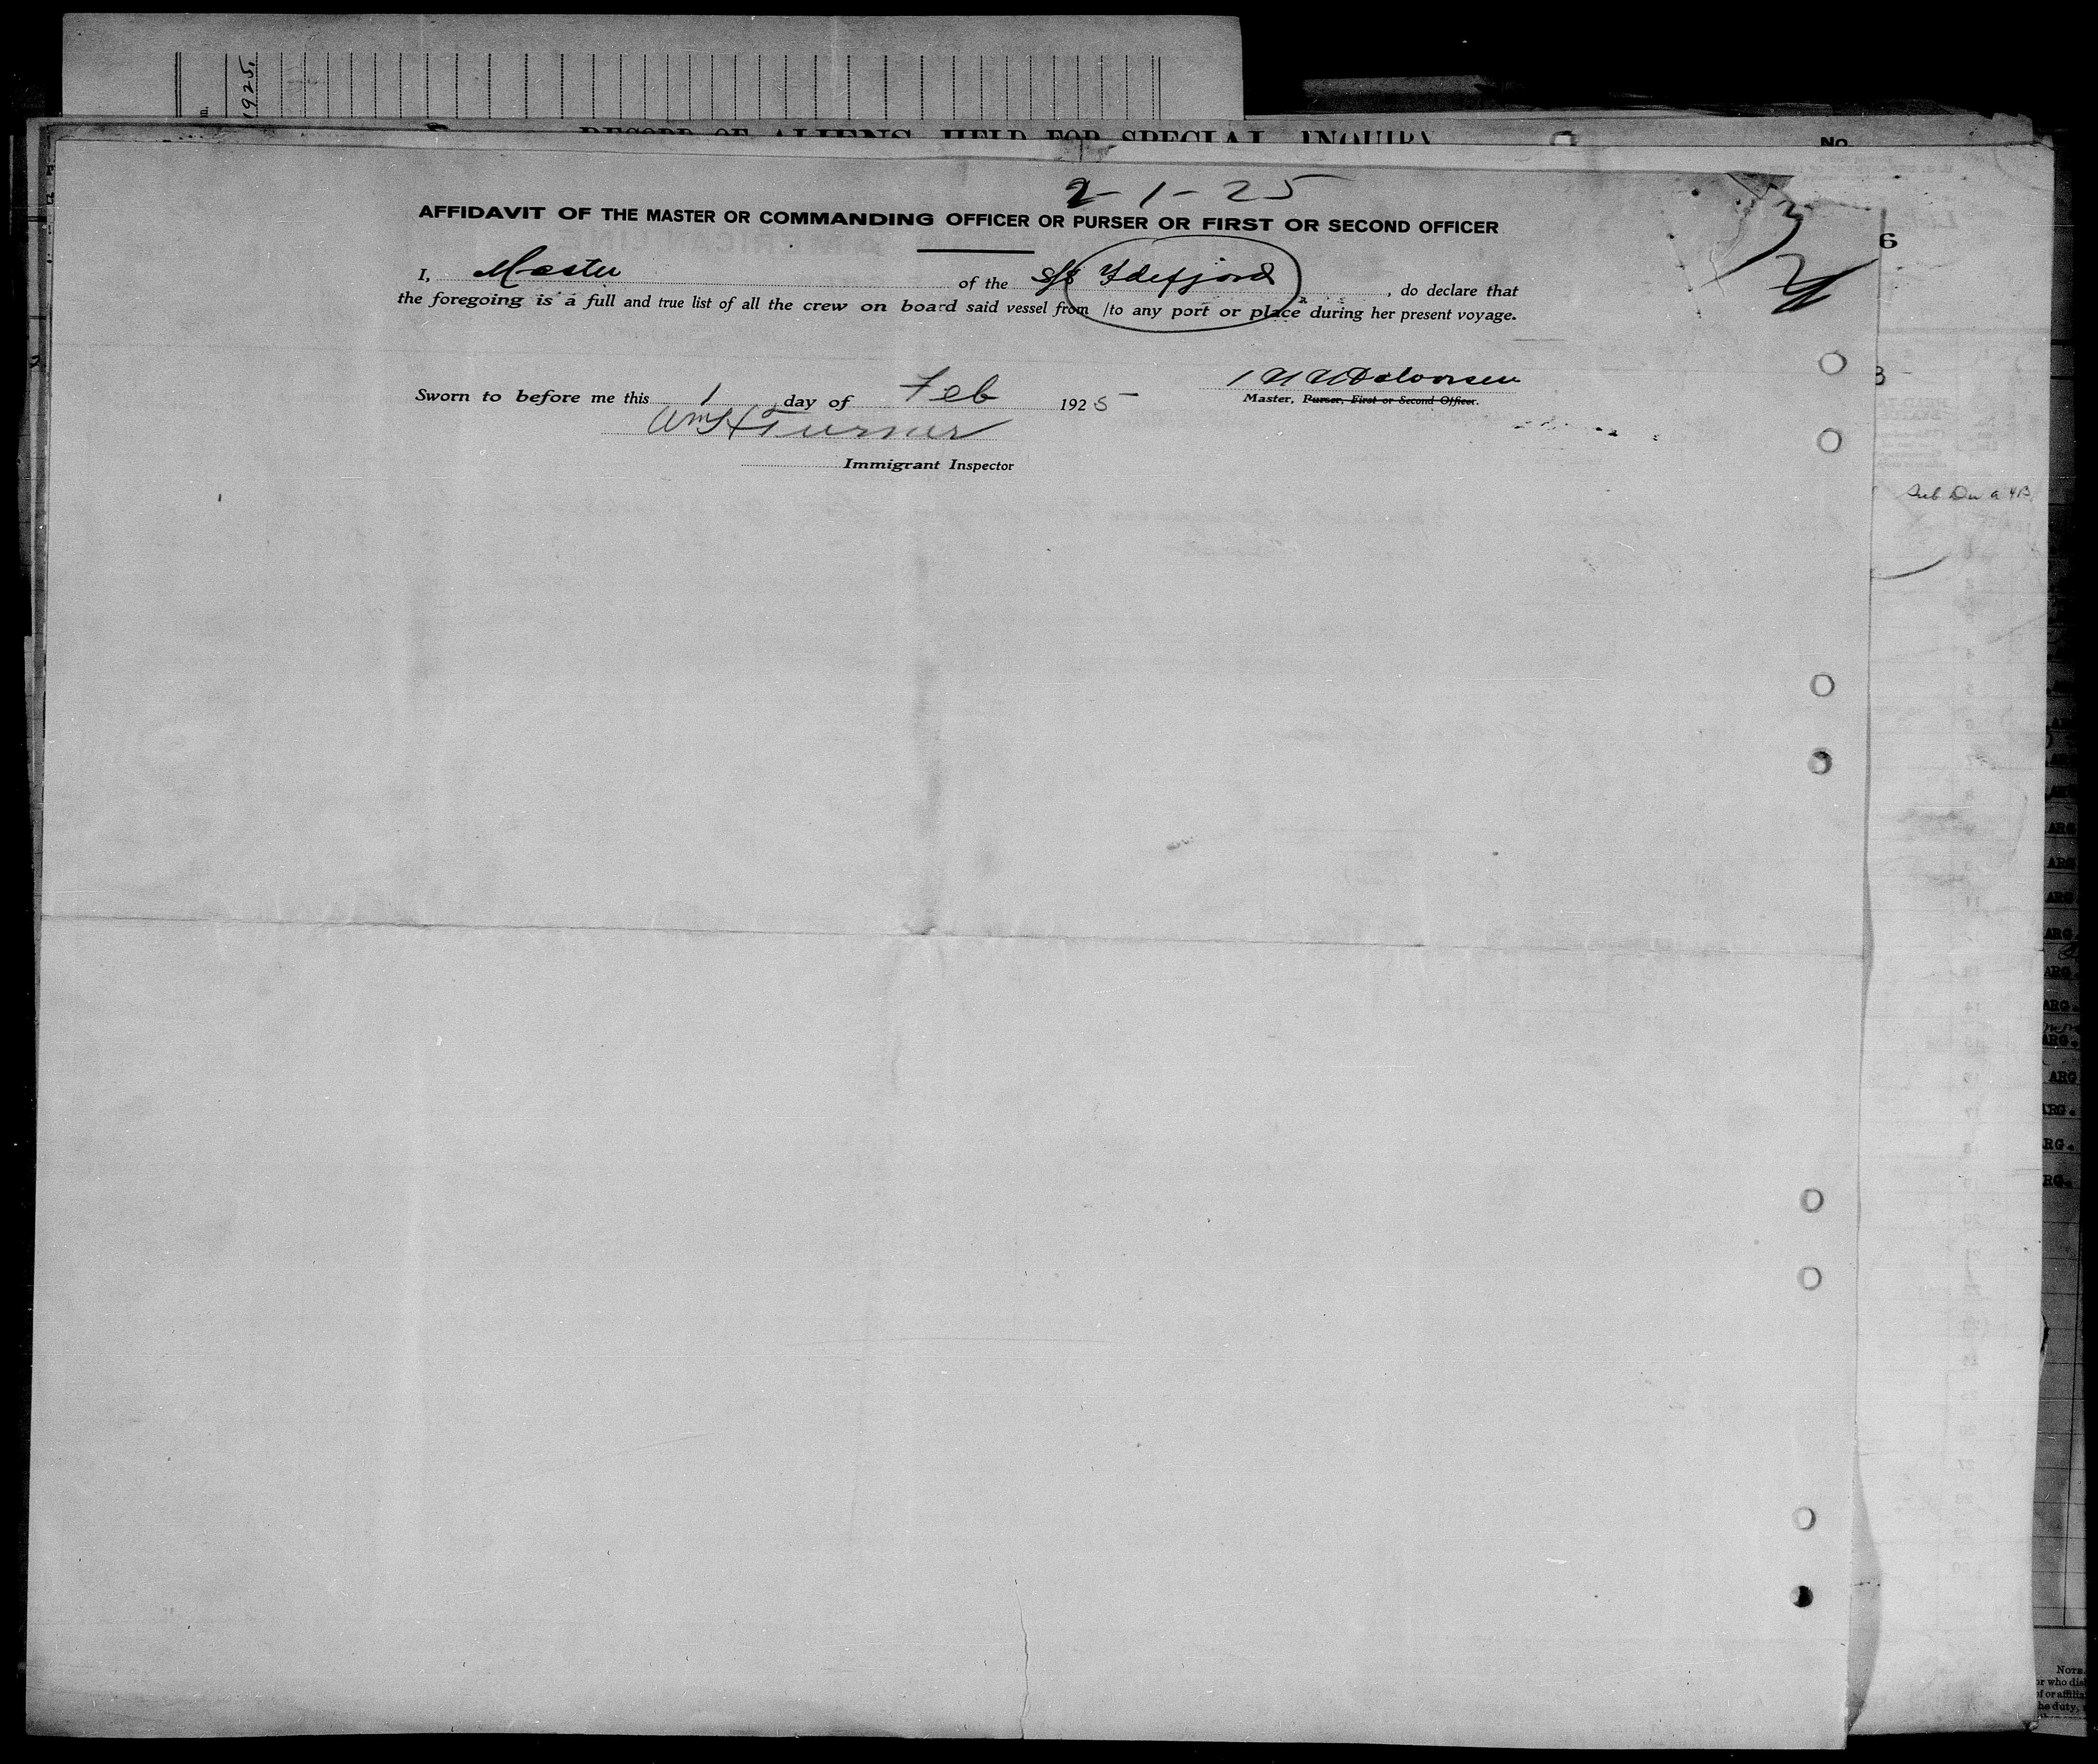 1925,
RECORD OF ALIENS HELD FOR SPECIAL INQUIRY
No.
2-1-25
AFFIDAVIT OF THE MASTER OR COMMANDING OFFICER OR PURSER OR FIRST OR SECOND OFFICER
I, Master of the S/S Idefjord, do declare that
the foregoing is a full and true list of all the crew on board said vessel from /to any port or place during her present voyage.
Sworn to before me this 1 day of Feb 1925
Master, Purser, First or Second Officer.
Wm H Turner
Immigrant Inspector
6
3
ARG
ARG
ARG
ARG
ARG.
ARG.
ARG.
ARG
ARG.
RG.
RG.
NOTE.
or who dis
of or affilia
he duty,